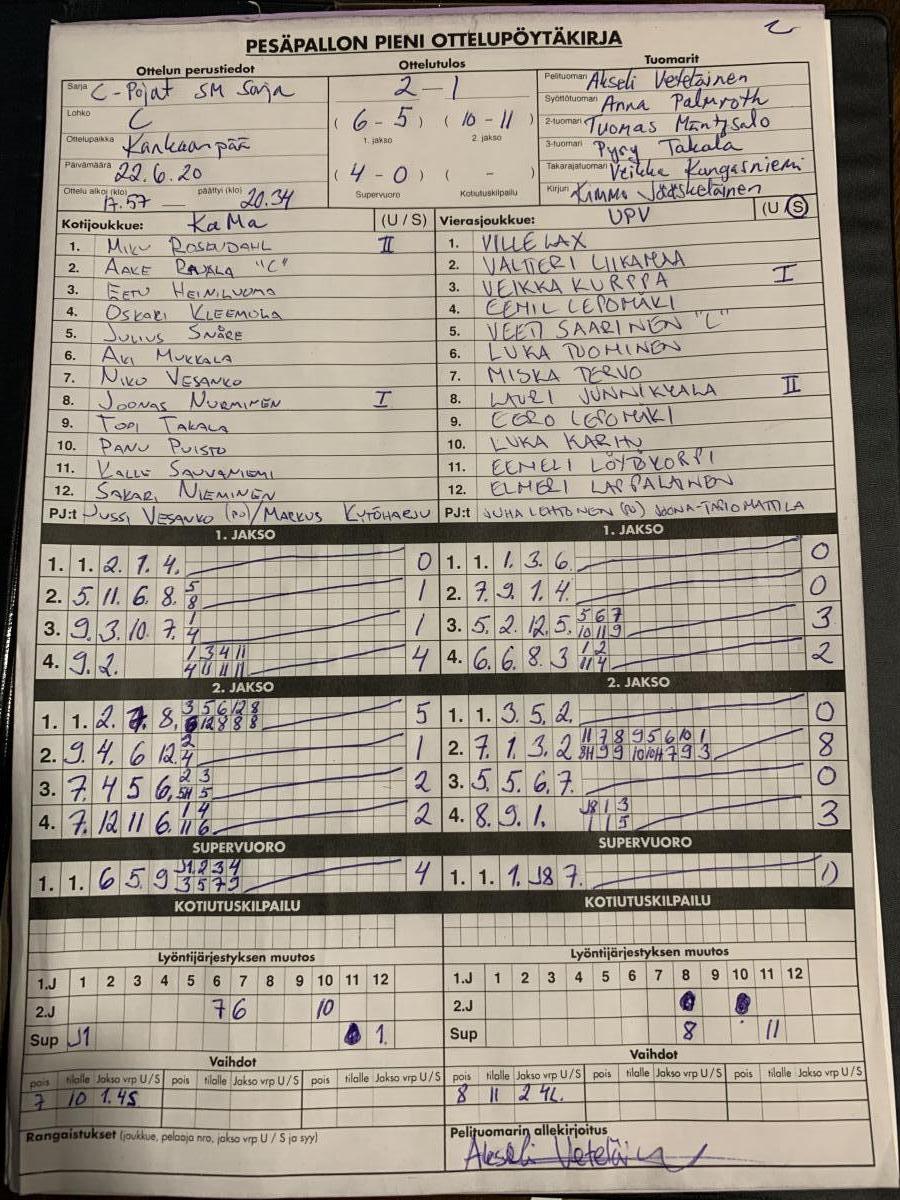 PESÄPALLON PIENI OTTELUPÖYTÄKIRJA
Ottelun perustiedot
Sarja C-Pojat SM Sarja
Lohko C
Ottelupaikka Kankaanpää
Päivämäärä 22.6.20
Ottelu alkoi (klo) 17.57 — päättyi (klo) 20.34
Ottelutulos
2 - 1
( 6 - 5 ) ( 10 - 11 )
1. jakso 2. jakso
( 4 - 0 ) ( - )
Supervuoro Kotiutuskilpailu
Tuomarit
Pelituomari Akseli Veteläinen
Syöttötuomari Anna Palmroth
2-tuomari Tuomas Mäntysalo
3-tuomari Pyry Takala
Takarajatuomari Veikka Kangasniemi
Kirjuri Kimmo Jääskeläinen
Kotijoukkue: KaMa (U / S)
1. MIKU ROSENDAHL II
2. AAKE RAJALA "C"
3. EETU HEINILUOMA
4. OSKARI KLEEMOLA
5. JULIUS SNÅRE
6. AKI MUKKALA
7. NIKO VESANKO
8. JOONAS NURMINEN I
9. TOPI TAKALA
10. PANU PUISTO
11. KALLE SAUVANIEMI
12. SAKARI NIEMINEN
PJ:t JUSSI VESANKO (PJ) / MARKUS KYTÖHARJU
Vierasjoukkue: UPV (U / S)
1. VILLE LAX
2. VALTTERI LIIKAMAA
3. VEIKKA KURPPA I
4. EEMIL LEPOMÄKI
5. VEETI SAARINEN "C"
6. LUKA TUOMINEN
7. MISKA TERVO
8. LAURI JUNNIKKALA II
9. EERO LEPOMÄKI
10. LUKA KARHU
11. EEMELI LÖYTÖKORPI
12. ELMERI LAPPALAINEN
PJ:t JUHA LEHTONEN (PJ) JOONA-TAPIO MATTILA
1. JAKSO
1. 1. 2. 7. 4. 0
2. 5. 11. 6. 8. 5 1
8
3. 9. 3. 10. 7. 1 1
4
4. 9. 2. 1 3 4 11 4
4 11 11 11
1. 1. 1. 3. 6. 0
2. 7. 9. 1. 4. 0
3. 5. 2. 12. 5. 5 6 7 3
10 11 9
4. 6. 6. 8. 3 1 2 2
11 4
2. JAKSO
1. 1. 2. 7. 8. 3 5 6 12 8 5
6 12 8 8 8
2. 9. 4. 6 12. 2 1
4
3. 7. 4 5 6. 2 3 2
5H 5
4. 7. 12 11 6. 1 4 2
11 6
2. JAKSO
1. 1. 3. 5. 2. 0
2. 7. 1. 3. 2 11 7 8 9 5 6 10 1 8
8H 9 9 10 10H 7 9 3
3. 5. 5. 6. 7. 0
4. 8. 9. 1. J8 1 3 3
1 1 5
SUPERVUORO
1. 1. 6 5. 9 J1 2 3 4 4
3 5 7 9
SUPERVUORO
1. 1. 1. J8 7.
KOTIUTUSKILPAILU
KOTIUTUSKILPAILU
Lyöntijärjestyksen muutos
1.J 1 2 3 4 5 6 7 8 9 10 11 12
2.J 7 6 10
Sup J1 1.
Lyöntijärjestyksen muutos
1.J 1 2 3 4 5 6 7 8 9 10 11 12
2.J
Sup 8 11
Vaihdot
pois tilalle Jakso vrp U / S pois tilalle Jakso vrp U / S pois tilalle Jakso vrp U / S
7 10 1.4S
Vaihdot
pois tilalle Jakso vrp U / S pois tilalle Jakso vrp U / S pois tilalle Jakso vrp U / S
8 11 2 4L.
Rangaistukset (joukkue, pelaaja nro, jakso vrp U / S ja syy)
Pelituomarin allekirjoitus
Akseli Veteläinen